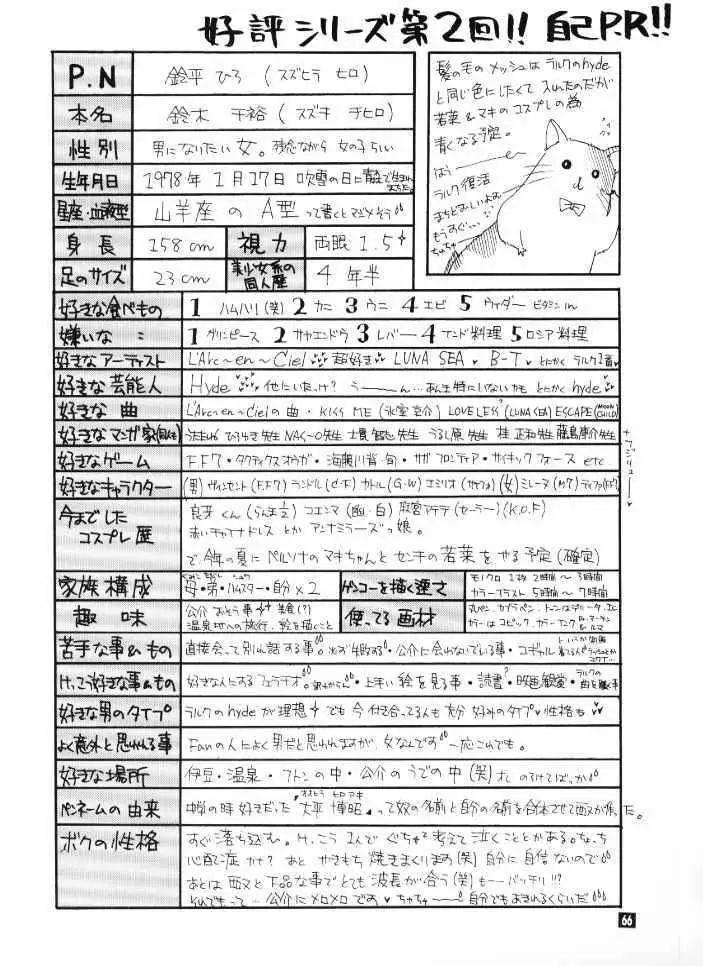 好評シリーズ第2回!! 自己P.R!!
P.N 鈴平 ひろ (スズヒラ ヒロ)
本名 鈴木 千裕 (スズキ チヒロ)
性別 男になりたい女。残念ながら 女の子らしい
生年月日 1978年 1月17日 吹雪の日に
星座・血液型 山羊座 の A型 って書くとマジメそう
身長 158cm 視力 両眼 1.5
足のサイズ 23cm 美少女系の同人歴 4年半
髪の毛のメッシュは ラルクのhyde
と同じ色にしたくて 入れたのだが
若菜&マキのコスプレの為
青くなる予定。
はぅー
ラルク復活
まちどおしいよぉ
もうすぐ…
ちゅちゅ
好きな食べもの 1 ハムハリ(笑) 2 カニ 3 ウニ 4 エビ 5 ウイダー ビタミンin
嫌いな 〃 1 グリンピース 2 サヤエンドウ 3 レバー 4 インド料理 5 ロシア料理
好きなアーティスト L'Arc〜en〜Ciel 超好き LUNA SEA B-T とにかく ラルク1番
好きな芸能人 Hyde 他にいたっけ? うーーん…あんま特にいないかも とにかく hyde
好きな 曲 L'Arc〜en〜Cielの曲・KISS ME (氷室京介) LOVELESS (LUNA SEA) ESCAPE (MOON CHILD)
好きなマンガ家 士貴智志先生 うるし原先生 桂 正和先生 藤島康介先生
好きなゲーム F.F7・タクティクスオウガ・海腹川背・旬・サガ フロンティア・サイキックフォース etc
好きなキャラクター (男) ヴィンセント (F.F7) カトル (G・W) エミリオ (女) ミレーヌ (M7) ティファ (F.F7)
今までしたコスプレ歴 良牙くん (らんま½) コエンマ (幽・白) 麻宮アテナ (セーラー) (K.O.F)
赤いチャイナドレス とか アンナミラーズっ娘。
で、今年の夏に ペルソナの マキちゃんと センチの 若菜 を やる予定 (確定)
家族構成 母・弟・ハムスター・自分×2 ゲンコーを描く速さ モノクロ 1枚 2時間〜3時間
カラーイラスト 5時間〜7時間
趣味 公介 おそう事
温泉地への旅行、絵を描くこと 使ってる画材 丸ペン・カブラペン・トーンはデリータ・I.C
カラーはコピック・カラーインク
苦手な事&もの 直接会って別れ話する事。・公介に会わないでいる事・コギャル
けっこう好きな事&もの 好きな人にするフェラチオ・上手い絵を見る事・読書・映画鑑賞・ラルクの曲を聴く事
好きな男のタイプ ラルクのhydeが理想 でも 今 付き合ってる人も 充分 好みのタイプ 性格も
よく意外と思われる事 Fanの人によく男だと思われますが、女なんです 一応これでも。
好きな場所 伊豆・温泉・フトンの中・公介のうでの中 (笑)
ペンネームの由来 中学の時 好きだった "大平 博昭" って奴の名前と自分の名前を合体させて
ボクの性格 すぐ落ち込む。けっこう 1人で ぐちゃぐちゃ考えて 泣くことがある。
心配症 かな? あと やきもち 焼きまくります (笑) 自分に 自信 ないので
あとは 下品な事で とても 波長が合う (笑) もーーバッチリ!!!
それでもって… 公介に メロメロです ちゅちゅーー 自分でもあきれるくらいだ
66